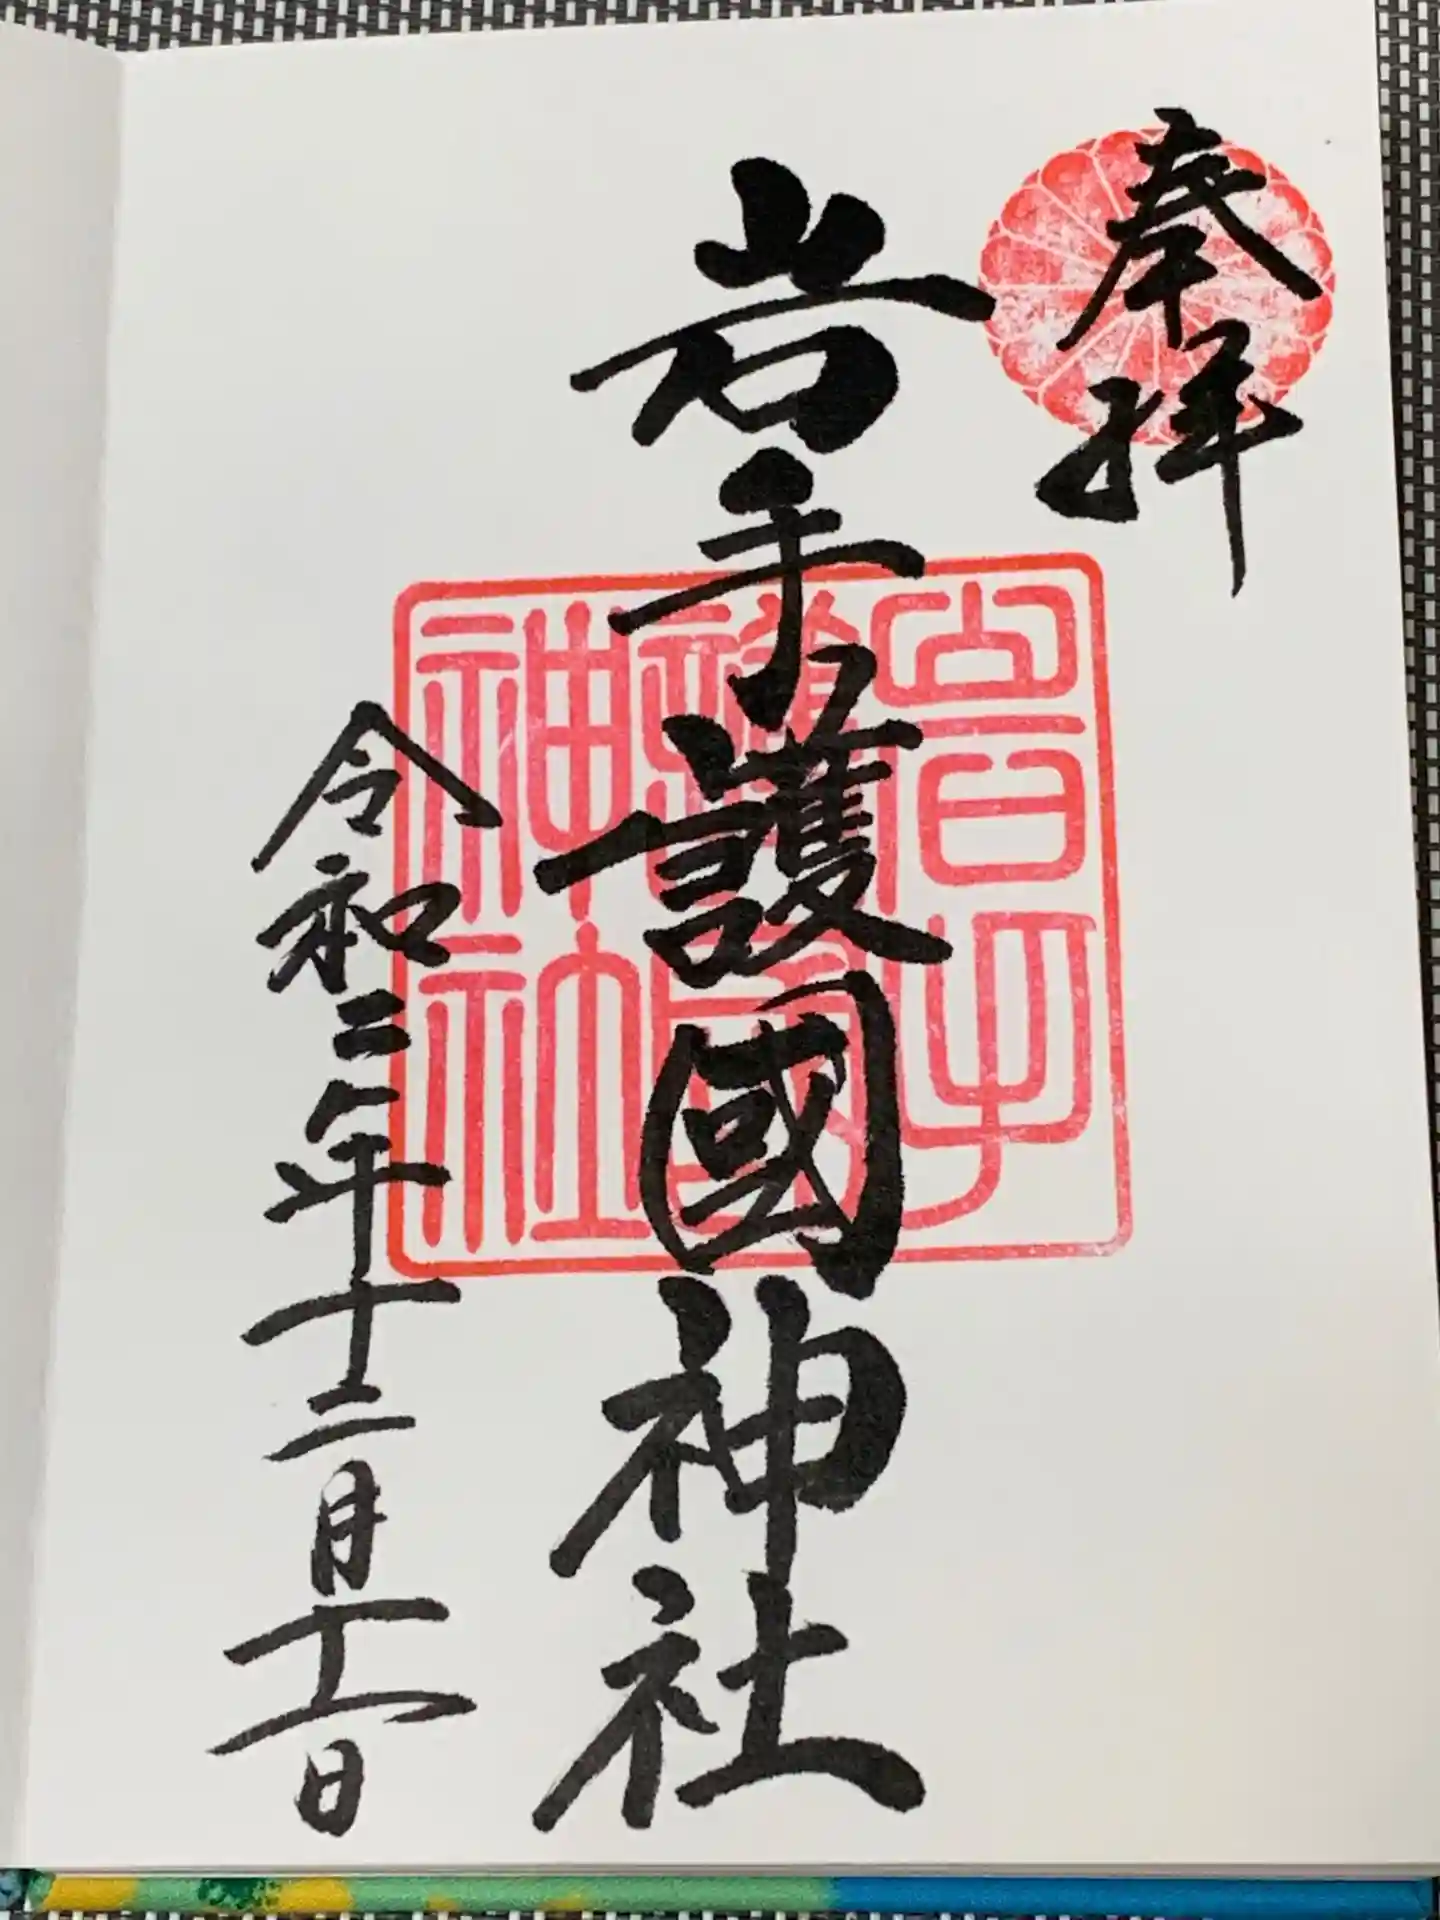 奉拝
岩手護國神社
令和二年十二月十一日
岩手
護國
神社